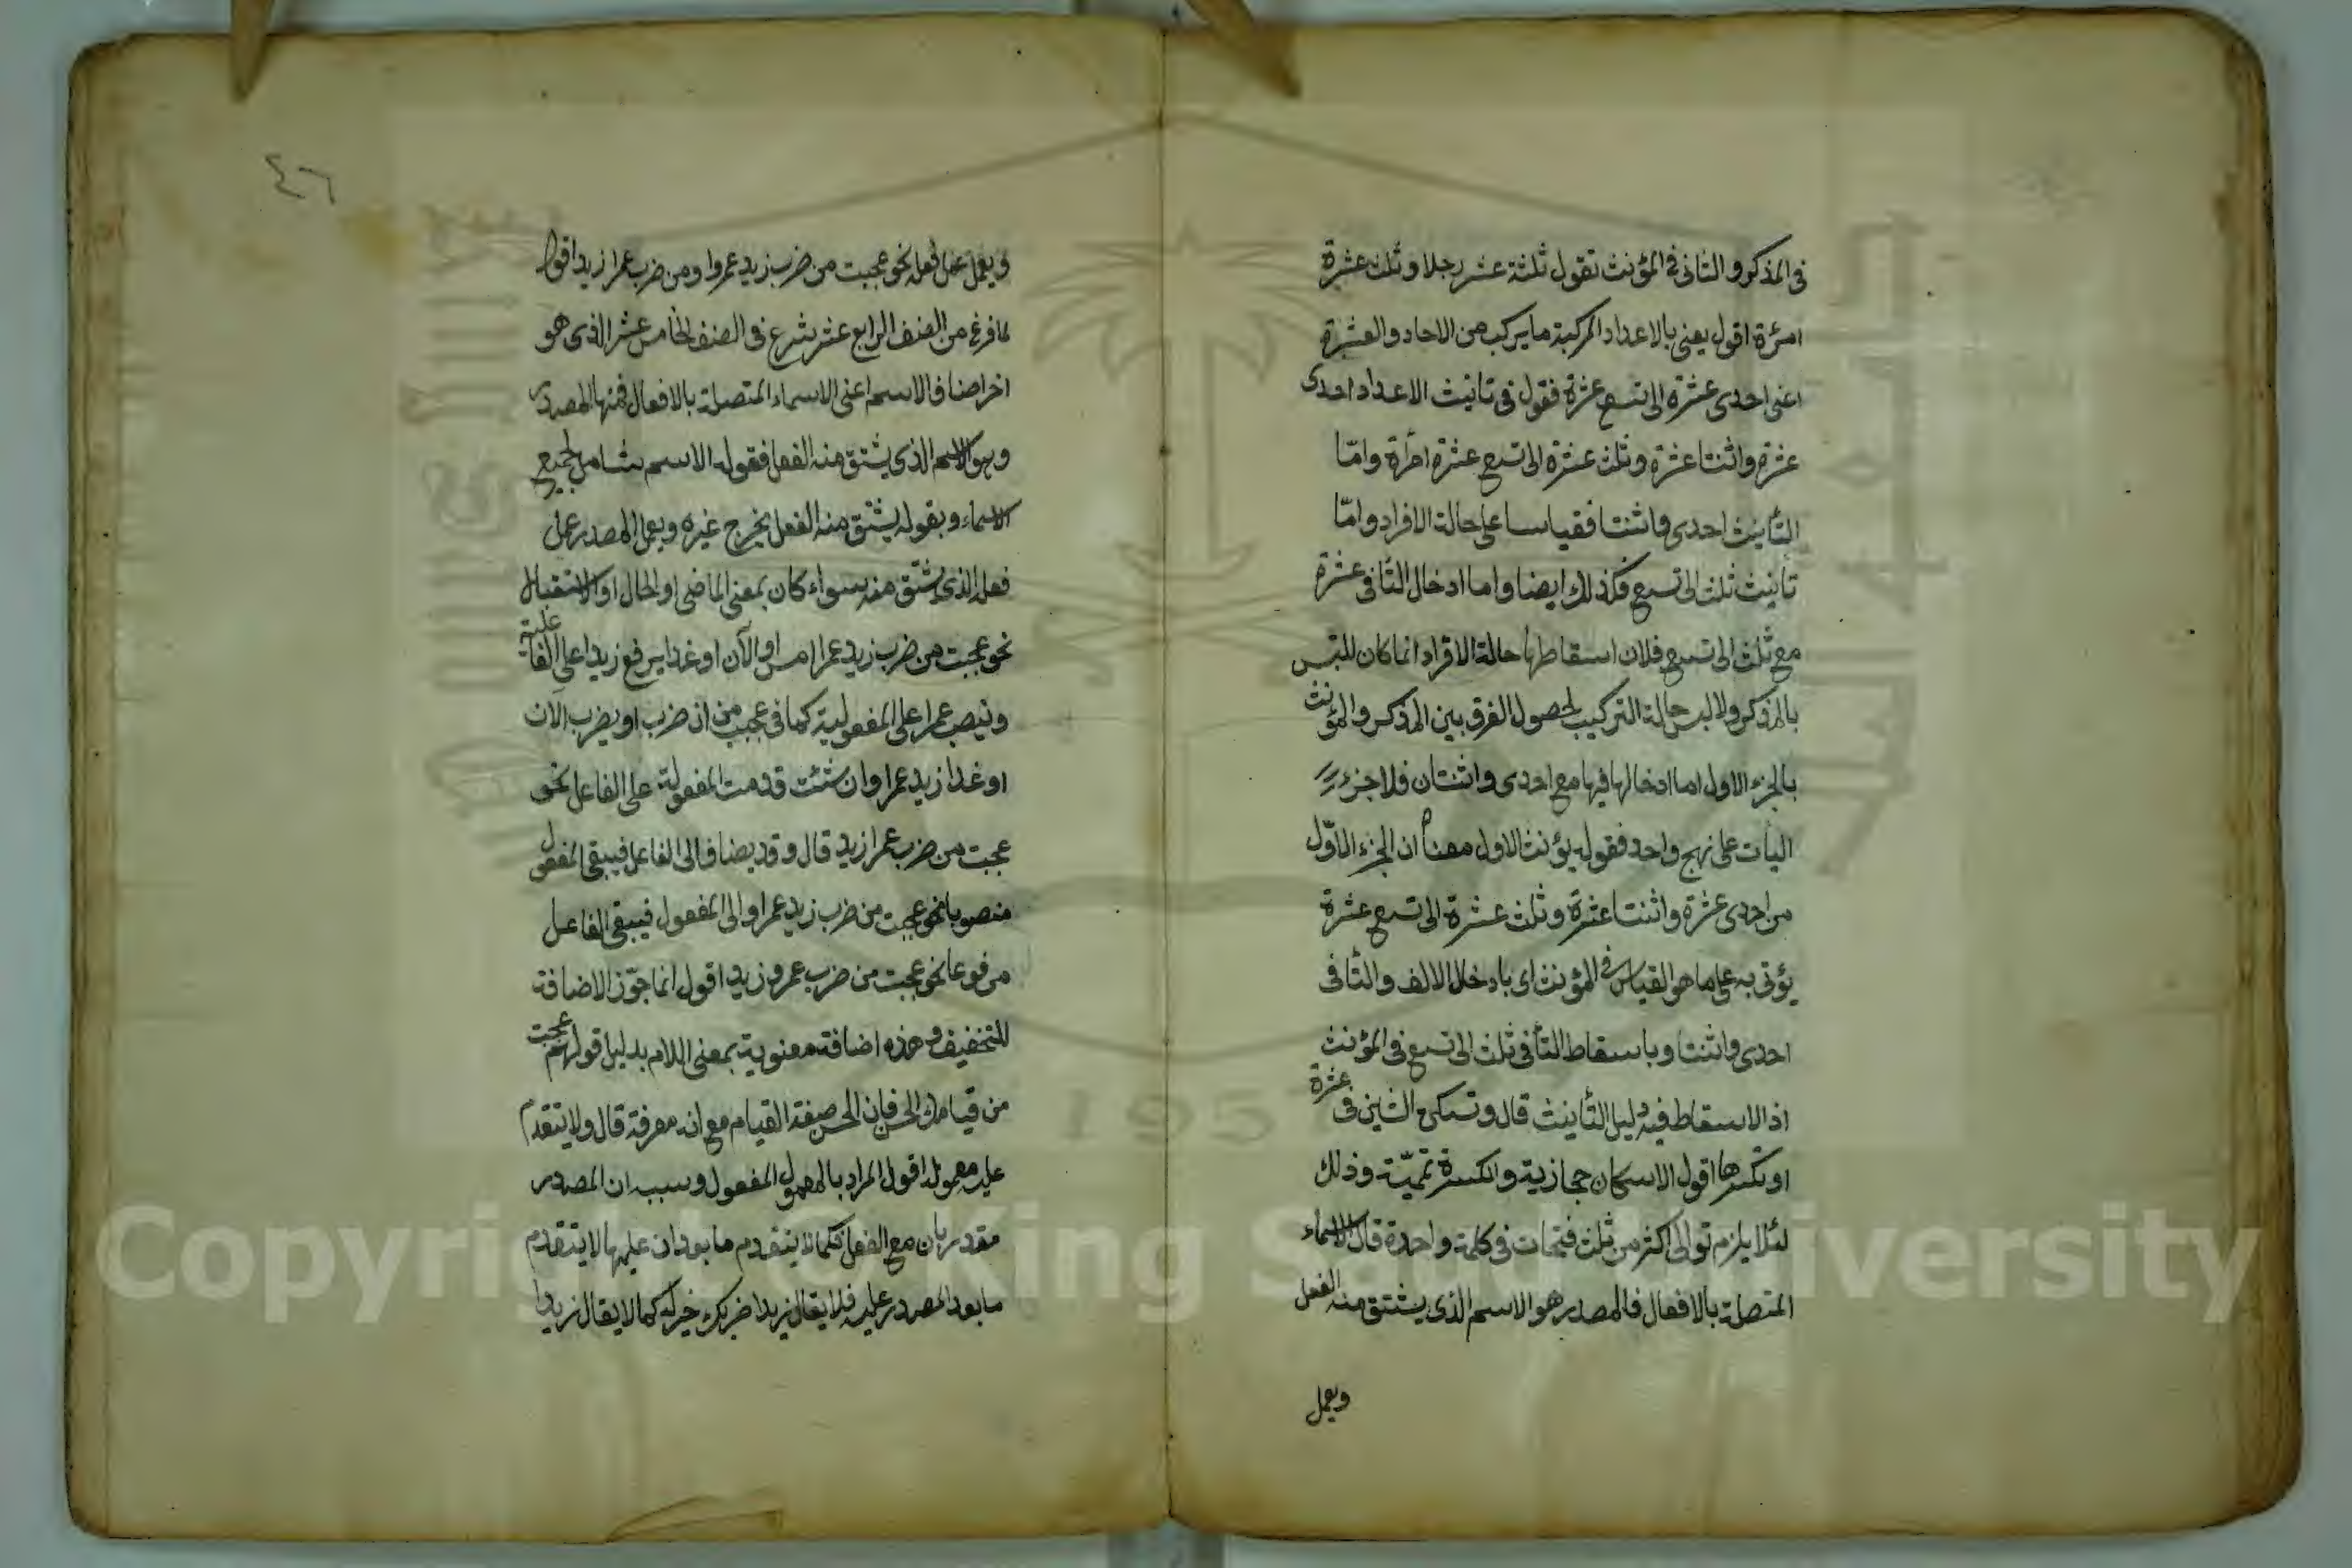 فى المذكر والثانى فى المؤنث تقول ثلثة عشر رجلا وثلث عشرة
امرءة اقول يعنى بالاعداد المركبة ما يركب من الاحاد والعشرة
اعنى احدى عشرة الى تسع عشرة فقول فى تانيث الاعداد احدى
عشرة واثنتا عشرة وثلث عشرة الى تسع عشرة امرأة وامّا
التأنيث احدى واثنتا فقياسا على حالة الافراد وامّا
تانيث ثلث الى تسع فكذلك ايضا واما ادخال التا فى عشرة
مع ثلث الى تسع فلان اسقاطها حالة الافراد انما كان للبس
بالمذكر ولا لبس حالة التركيب لحصول الفرق بين المذكر والمؤنث
بالجزء الاول اما ادخالها فيها مع احدى واثنتان فلاجزء
الباب على نهج واحد فقوله يؤنث الاول معناه ان الجزء الاوّل
من احدى عشرة واثنتا عشرة وثلث عشرة الى تسع عشرة
يؤتى به على ما هو القياس فى المؤنث اى بادخال الالف والتا فى
احدى واثنتا وباسقاط التا فى ثلث الى تسع فى المؤنث
اذ الاسقاط فيه دليل التأنيث قال وتسكن الشين فى عشرة
او تكسرها اقول الاسكان حجازية والكسرة تميميّة وذلك
لئلا يلزم توالى اكثر من ثلث فتحات فى كلمة واحدة قال الاسماء
المتصلة بالافعال فالمصدر هو الاسم الذى يشتق منه الفعل
ويعمل
٤٦
ويعمل عمل فعله نحو عجبت من ضرب زيد عمروا ومن ضرب عمرا زيد اقول
لما فرغ من الصنف الرابع عشر شرع فى الصنف الخامس عشر الذى هو
اخر اصناف الاسم اعنى الاسماء المتصلة بالافعال فمنها المصدر
وهو الاسم الذى يشتق منه الفعل فقوله الاسم شامل لجميع
الاسماء وبقوله يشتق منه الفعل يخرج غيره ويعمل المصدر عمل
فعله الذى يشتق منه سواء كان بمعنى الماضى او الحال او الاستقبال
نحو عجبت من ضرب زيد عمرا امس او الآن او غدا يرفع زيدا على الفاعلية
وتنصب عمرا على المفعولية كما فى عجبت من ان ضرب او يضرب الآن
او غدا زيد عمرا وان شئت قدمت المفعولة على الفاعل نحو
عجبت من ضرب عمرا زيد قال وقد يضاف الى الفاعل فيبقى المفعول
منصوبا نحو عجبت من ضرب زيد عمرا والى المفعول فيبقى الفاعل
مرفوعا نحو عجبت من ضرب عمرو زيد اقول انما جوّز الاضافة
للتخفيف وهذه اضافة معنوية بمعنى اللام بدليل قولهم عجبت
من قيامك الحسن فان الحسن صفة القيام مع انه معرفة قال ولا يتقدم
عليه معموله اقول المراد بالمعمول المفعول وسببه ان المصدر
مقدر بان مع الفعل فكما لا يتقدم ما بعد ان عليها لا يتقدم
ما بعد المصدر عليه فلا يقال زيدا ضربك خير له كما لا يقال زيدا
Copyright © King Saud University
1957